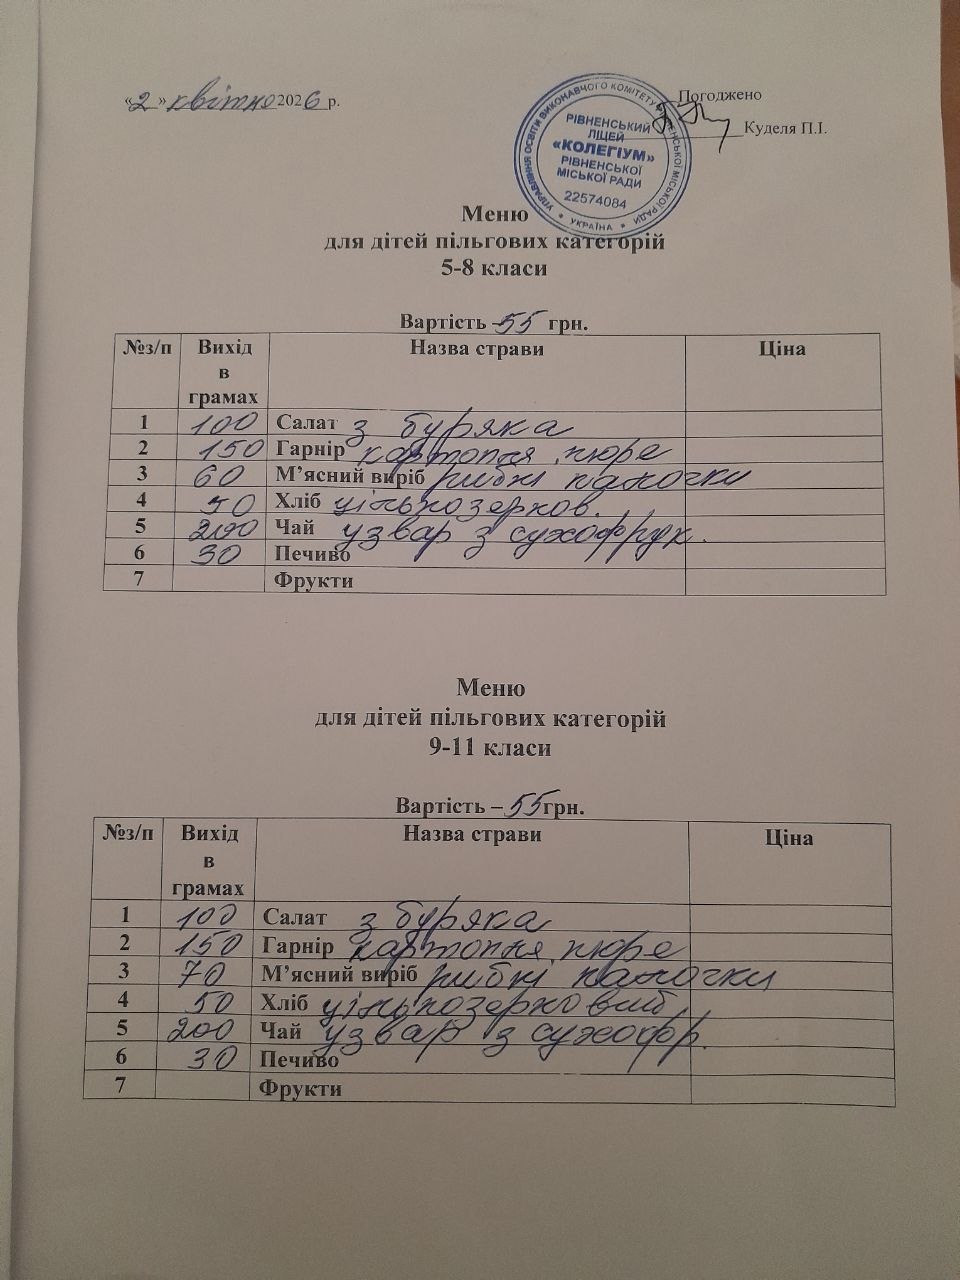 «2» квітня 2026 р.
Погоджено
Куделя П.І.
УПРАВЛІННЯ ОСВІТИ ВИКОНАВЧОГО КОМІТЕТУ РІВНЕНСЬКОЇ МІСЬКОЇ РАДИ
* УКРАЇНА *
РІВНЕНСЬКИЙ
ЛІЦЕЙ
«КОЛЕГІУМ»
РІВНЕНСЬКОЇ
МІСЬКОЇ РАДИ
22574084
Меню
для дітей пільгових категорій
5-8 класи
Вартість – 55 грн.
№з/п Вихід в грамах Назва страви Ціна
1 100 Салат з буряка
2 150 Гарнір картопля пюре
3 60 М’ясний виріб рибні палочки
4 50 Хліб цільнозернов.
5 200 Чай узвар з сухофрук.
6 30 Печиво
7 Фрукти
Меню
для дітей пільгових категорій
9-11 класи
Вартість – 55 грн.
№з/п Вихід в грамах Назва страви Ціна
1 100 Салат з буряка
2 150 Гарнір картопля пюре
3 70 М’ясний виріб рибні палочки
4 50 Хліб цільнозерновий
5 200 Чай узвар з сухофр.
6 30 Печиво
7 Фрукти